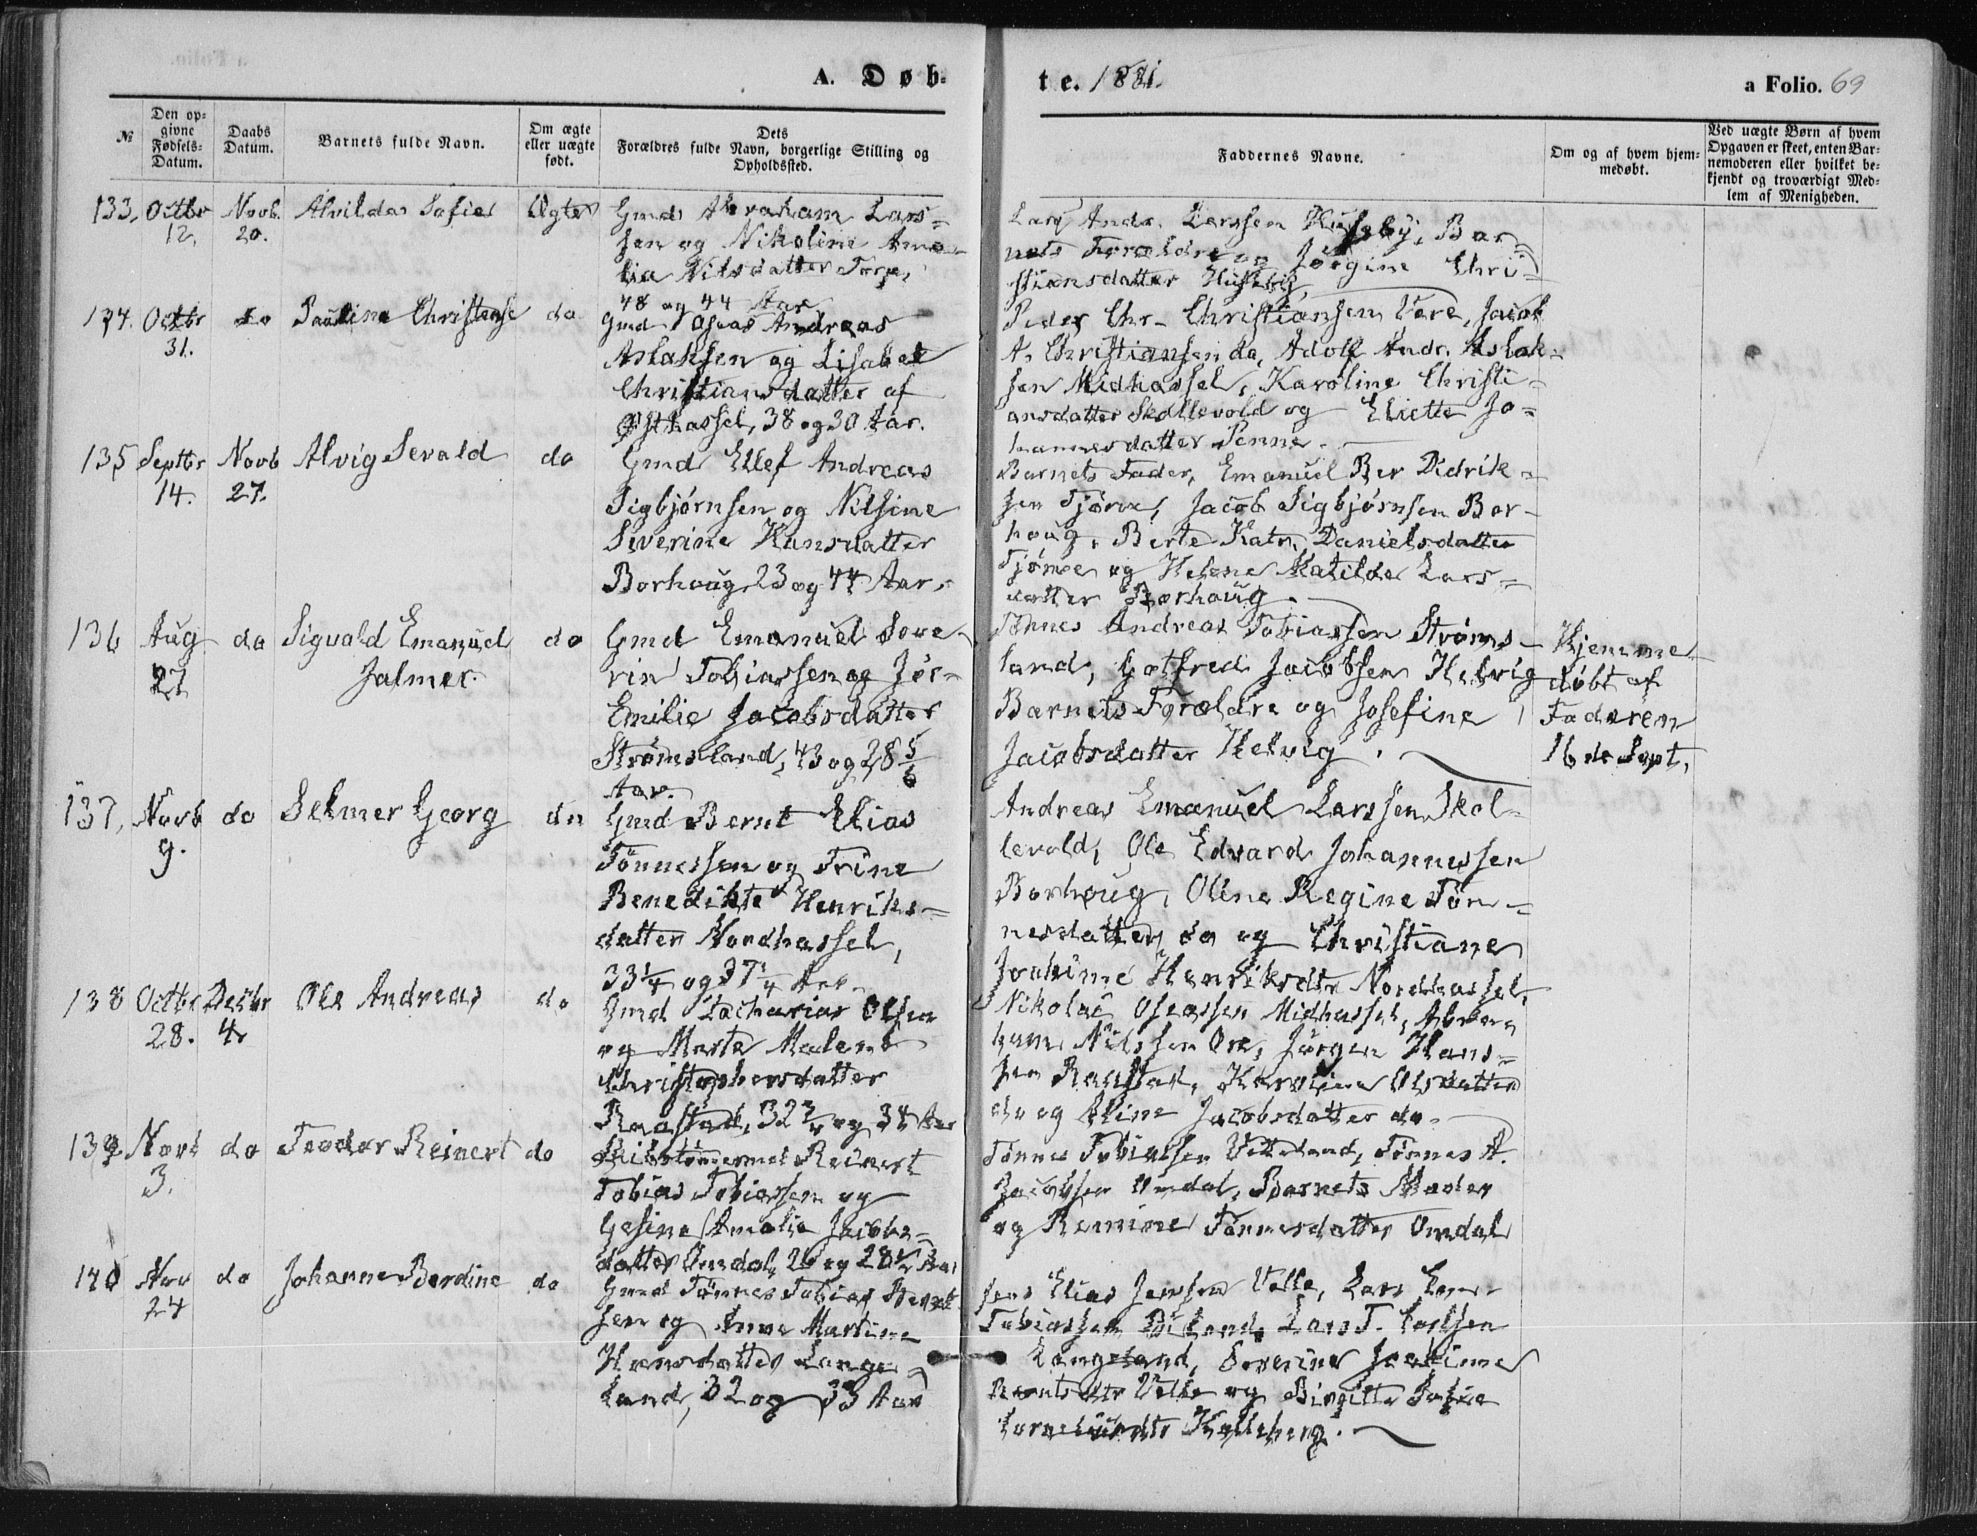 a Folio.
A. Døb-
te. 1881.
a Folio. 69
№
Den op-
givne
Fødsels-
Datum.
Daabs
Datum.
Barnets fulde Navn.
Om ægte
eller uægte
født.
Dets
Forældres fulde Navn, borgerlige Stilling og
Opholdssted.
Faddernes Navne.
Om og af hvem hjem-
medøbt.
Ved uægte Børn af hvem
Opgaven er skeet, enten Bar-
nemoderen eller hvilket be-
kjendt og troværdigt Med-
lem af Menigheden.
133, Octbr
12,
Novb.
20.
Alvilda Sofie
Ægte
Gmd Abraham Lars-
sen og Nikoline Ama-
lia Nilsdatter Torp,
48 og 44 Aar
Lars Andr. Larssen Huseby, Bar-
nets Forældre og Jørgine Chri-
stiansdatter Huseby,
134. Octbr
31.
do
Pauline Christense
do
Gmd Oseas Andreas
Aslaksen og Lisabet
Christiansdatter af
Østhassel, 38 og 30 Aar.
Peder Chr. Christiansen Vere, Jacob
A. Christiansen do, Adolf Andr. Aslak-
sen Midhassel, Karoline Christi-
ansdatter Skollevold og Eliette Jo-
hannesdatter Penne.
135 Septbr
14.
Novb
27.
Alvig Sevald
do
Gmd Ellef Andreas
Sigbjørnsen og Nilsine
Severine Hansdatter
Borhaug 23 og 44 Aar,
Barnets Fader, Emanuel Ber Didrik-
sen Tjørve, Jacob Sigbjørnsen Bor-
haug, Berte Katr. Danielsdatter
Tjørve og Helene Matilde Lars-
datter Borhaug.
136
Aug
27
do
Sigvald Emanuel
Jalmer.
do
Gmd Emanuel Seve-
rin Tobiassen og Jør-
Emilie Jacobsdatter
Strømsland, 43 og 28 5/6
Aar.
Tønnes Andreas Tobiassen Strøms-
land, Gotfred Jacobsen Helvig
Barnets Forældre og Josefine
Jacobsdatter Helvig.
Hjemme
døbt af
Faderen
16de Sept,
137, Novb
9.
do
Selmer Georg
do
Gmd Bernt Elias
Tønnessen og Trine
Benedikte Henriks-
datter Nordhassel,
33 1/4 og 37 1/4 Aar
Andreas Emanuel Larssen Skol-
levold, Ole Edvard Johannessen
Borhaug, Oline Regine Tøn-
nesdatter do og Christiane
Joakime Henriksdtr Nordhassel,
138 Octbr
28.
Decbr
4
Ole Andreas
do
Gmd Zacharias Olsen
og Marte Malene
Christophersdatter
Raastad, 32 3/4 og 34 Aar
Nikolai Oseassen Midhassel, Abra-
ham Nilssen Ore, Jørgen Hans-
sen Raastad, Karoline Olsdatter
do og Eline Jacobsdatter do.
139 Novb
3.
do
Teodor Reinert
do
Skibstømmermd Reinert
Tobias Tobiassen og
Gesine Amalie Jacobs-
datter Omdal, 26 og 28 1/2 Aar
Tønnes Tobiassen Vetteland, Tønnes A.
Jacobsen Omdal, Barnets Moder
og Remine Tønnesdatter Omdal
140 Nov
24
do
Johanne Berdine
do
Gmd Tønnes Tobias Berndt
sen og Anne Martine
Hansdatter Lange
land, 32 og 33 Aar
Jens Elias Jenssen Velle, Lars
Tobiassen Lars T.
Langeland, Severine Joakime
Berntsdtr Velle og Birgitte
Corneliusdtr Kalleberg.